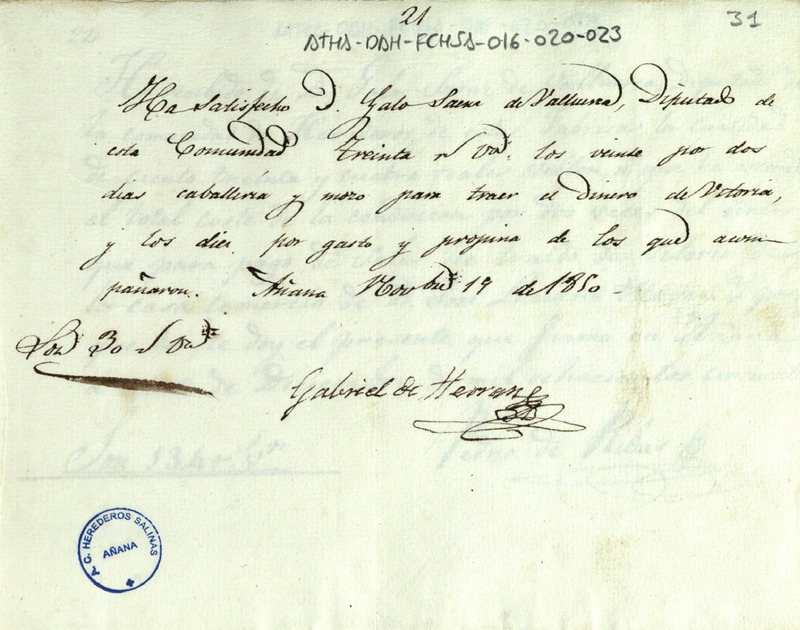 21
31
ATHA-DAH-FCHSA-016-020-023
Ha satisfecho D. Galo Saenz de Valluerca, Diputado de
esta Comunidad treinta r.s v.on: los veinte por dos
dias caballeria y mozo para traer el dinero de Vitoria,
y los diez por gasto y propina de los que acom-
pañaron. Añana Novbre 19 de 1850
Son 30 r.s v.on
Gabriel de Herran
A. C. HEREDEROS SALINAS
AÑANA